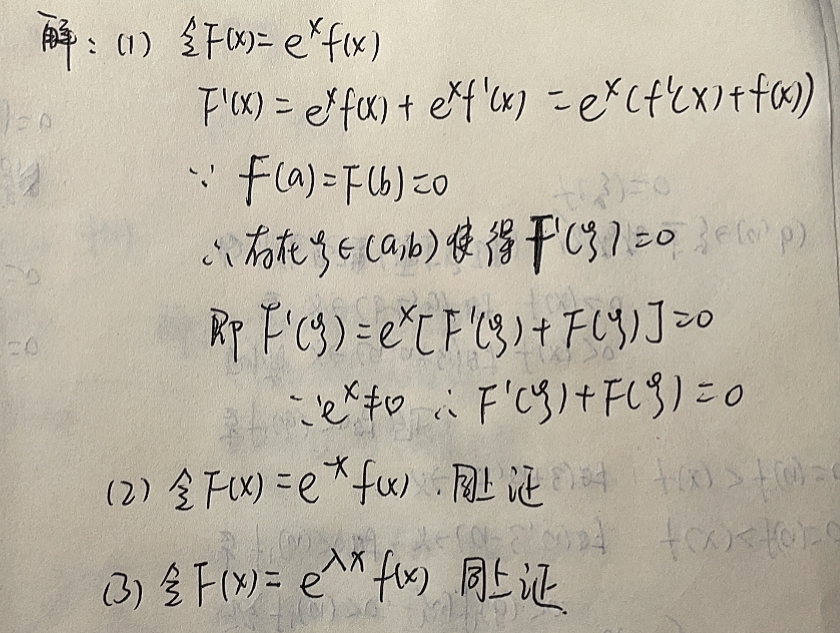 解：(1) 令F(x)=e^x f(x)
F'(x)=e^x f(x)+e^x f'(x)=e^x(f'(x)+f(x))
∵ F(a)=F(b)=0
∴存在ξ∈(a,b)使得F'(ξ)=0
即F'(ξ)=e^x[F'(ξ)+F(ξ)]=0
∵e^x≠0 ∴F'(ξ)+F(ξ)=0
(2) 令F(x)=e^{-x} f(x).同上证
(3) 令F(x)=e^{λx} f(x) 同上证.